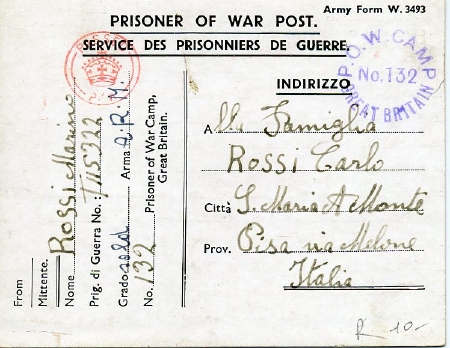 Army Form W. 3493
PRISONER OF WAR POST.
SERVICE DES PRISONNIERS DE GUERRE.
PASSED
P.O.W. CAMP
No. 132
GREAT BRITAIN
INDIRIZZO
A lla Famiglia
Rossi Carlo
Città S. Maria A Monte
Prov. Pisa via Melone
Italia
From
Mittente.
Nome Rossi Marino
Prig. di Guerra No.: 1115222
Grado sold Arma a. R. M.
No. 132 Prisoner of War Camp,
Great Britain.
R 10-